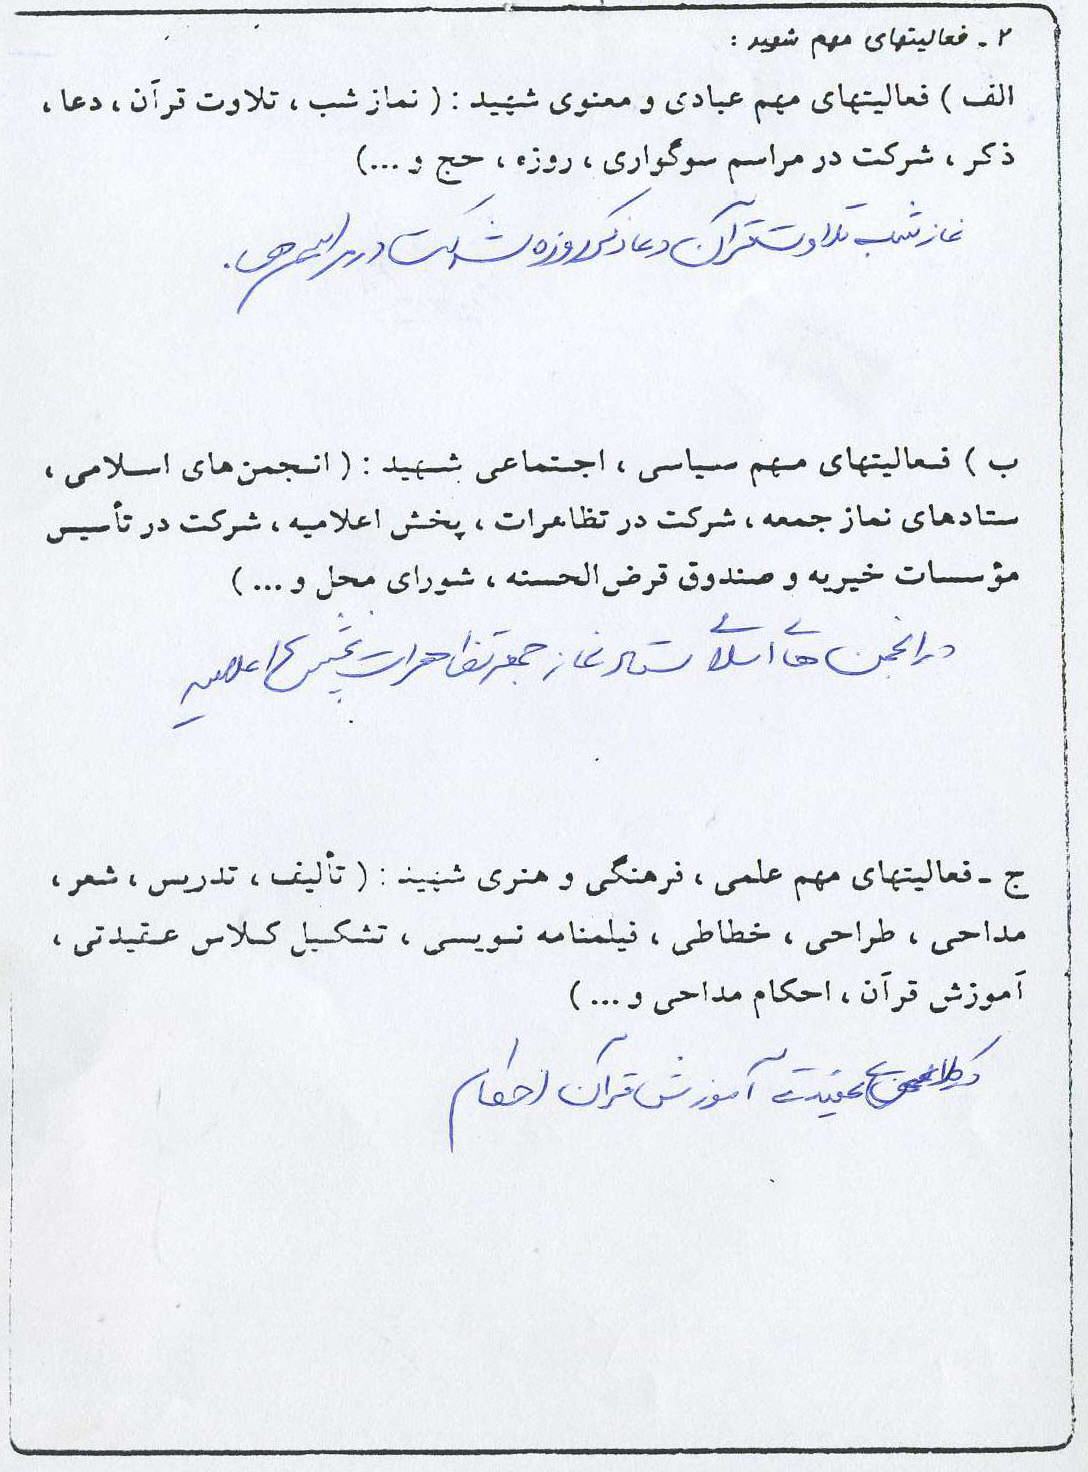 ۲ ـ فعالیتهای مهم شهید :
الف ) فعالیتهای مهم عبادی و معنوی شهید : ( نماز شب ، تلاوت قرآن ، دعا ،
ذکر ، شرکت در مراسم سوگواری ، روزه ، حج و ...)
نماز شب تلاوت قرآن دعا ذکر روزه شرکت در مراسم
ب ) فعالیتهای مهم سیاسی ، اجتماعی شهید : ( انجمن‌های اسلامی ،
ستادهای نماز جمعه ، شرکت در تظاهرات ، پخش اعلامیه ، شرکت در تأسیس
مؤسسات خیریه و صندوق قرض‌الحسنه ، شورای محل و ... )
در انجمن های اسلامی ستاد نماز جمعه تظاهرات پخش اعلامیه
ج ـ فعالیتهای مهم علمی ، فرهنگی و هنری شهید : ( تألیف ، تدریس ، شعر ،
مداحی ، طراحی ، خطاطی ، فیلمنامه نویسی ، تشکیل کلاس عقیدتی ،
آموزش قرآن ، احکام مداحی و ... )
عقیدتی آموزش قرآن احکام